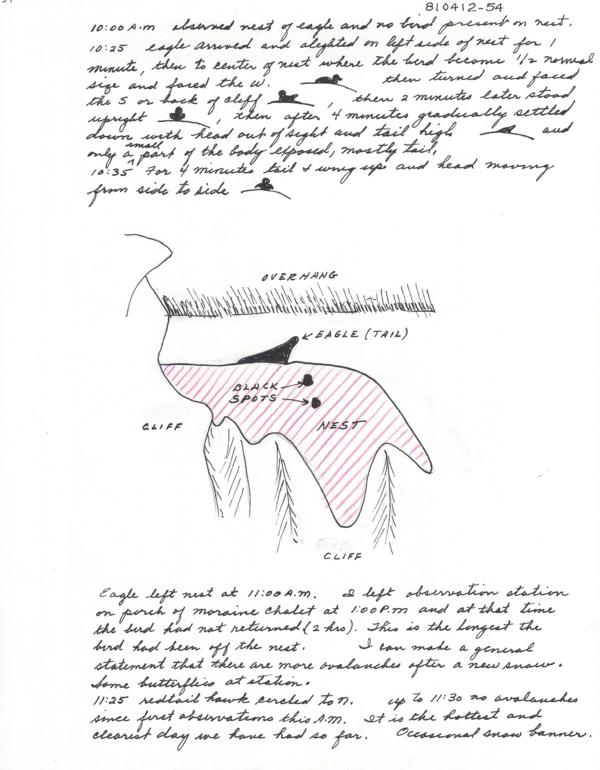 810412-54
10:00 A.m observed nest of eagle and no bird present on nest.
10:25 eagle arrived and aleghted on left side of nest for 1
minute, then to center of nest where the bird become 1/2 normal
size and faced the W. then turned and faced
the S or back of cliff , then 2 minutes later stood
upright , then after 4 minutes gradually settled
down with head out of sight and tail high and
only a small part of the body exposed, mostly tail,
10:35 For 4 minutes tail & wing ups and head moving
from side to side
OVERHANG
EAGLE (TAIL)
BLACK
SPOTS
NEST
CLIFF
CLIFF
Eagle left nest at 11:00 A.m. I left observation station
on porch of moraine chalet at 1:00 P.m and at that time
the bird had not returned (2 hrs). This is the longest the
bird had been off the nest. I can make a general
statement that there are more avalanches after a new snow.
Some butterflies at station.
11:25 redtail hawk circled to N. up to 11:30 no avalanches
since first observations this A.M. It is the hottest and
clearest day we have had so far. Occasional snow banner.